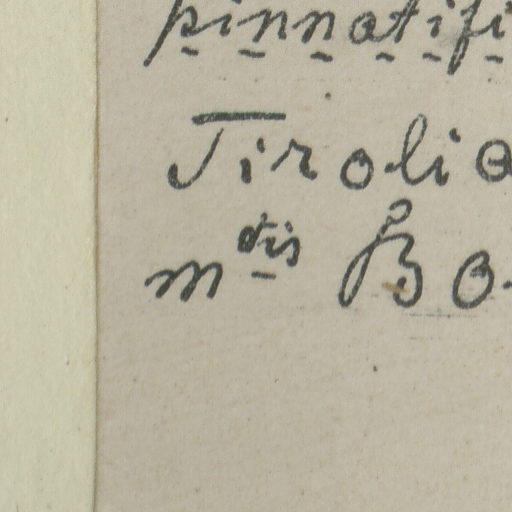 pinnatifi
Tirolia
mdis Bo